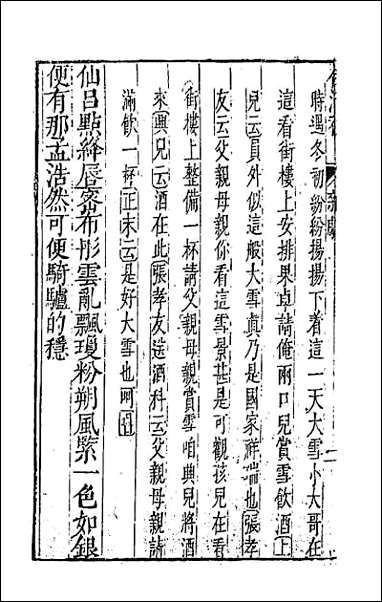 時遇冬初紛紛揚揚下着這一天大雪小大哥在
這看街樓上安排果卓請俺兩口兒賞雪飲酒卜
兒云員外似這般大雪真乃是國家祥瑞也張孝
友云父親母親你看這雪景甚是可觀孩兒在看
街樓上整備一杯請父親母親賞雪咱興兒將酒
來興兒云酒在此張孝友送酒科云父親母親請
滿飲一杯正末云是好大雪也呵唱
仙呂點絳唇密布彤雲亂飄瓊粉朔風緊一色如銀
便有那孟浩然可便騎驢的穩